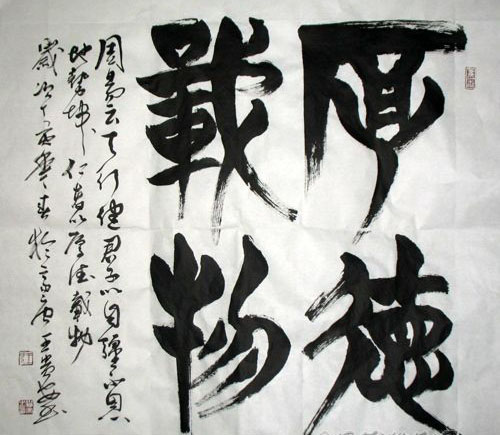 厚德
載物
周易云天行健君子以自強不息
地勢坤仁者以厚德載物
歲次丁亥春於王貴書